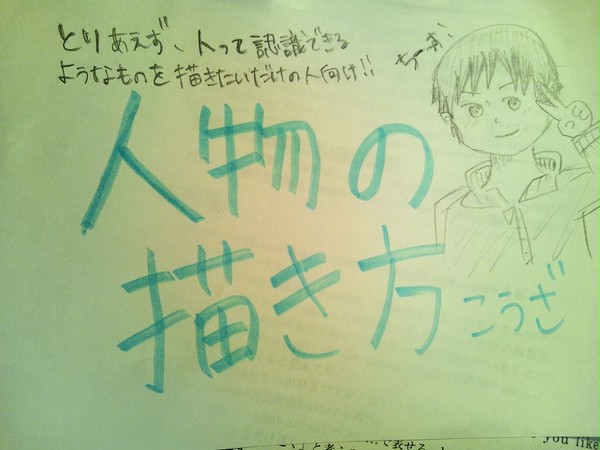 とりあえず、人って認識できる
ようなものを描きたいだけの人向け!!
人物の
描き方こうざ
you like